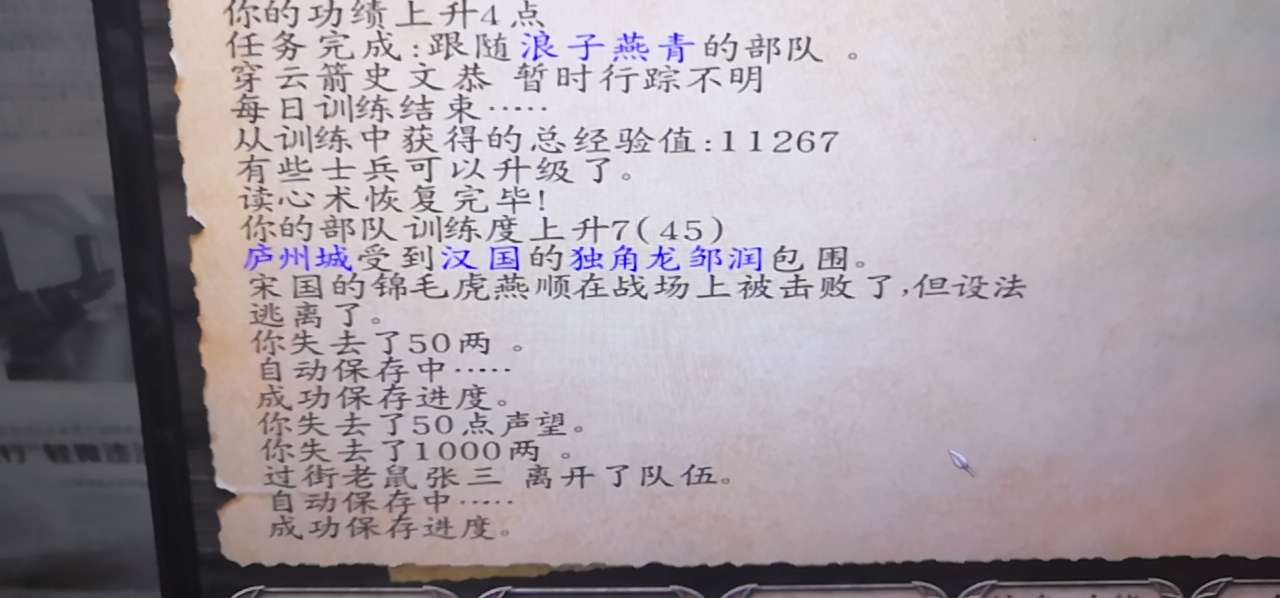 你的功绩上升4点
任务完成:跟随浪子燕青的部队 。
穿云箭史文恭 暂时行踪不明
每日训练结束……
从训练中获得的总经验值:11267
有些士兵可以升级了。
读心术恢复完毕!
你的部队训练度上升7(45)
庐州城受到汉国的独角龙邹润包围。
宋国的锦毛虎燕顺在战场上被击败了,但设法
逃离了。
你失去了50两 。
自动保存中……
成功保存进度。
你失去了50点声望。
你失去了1000两 。
过街老鼠张三 离开了队伍。
自动保存中……
成功保存进度。